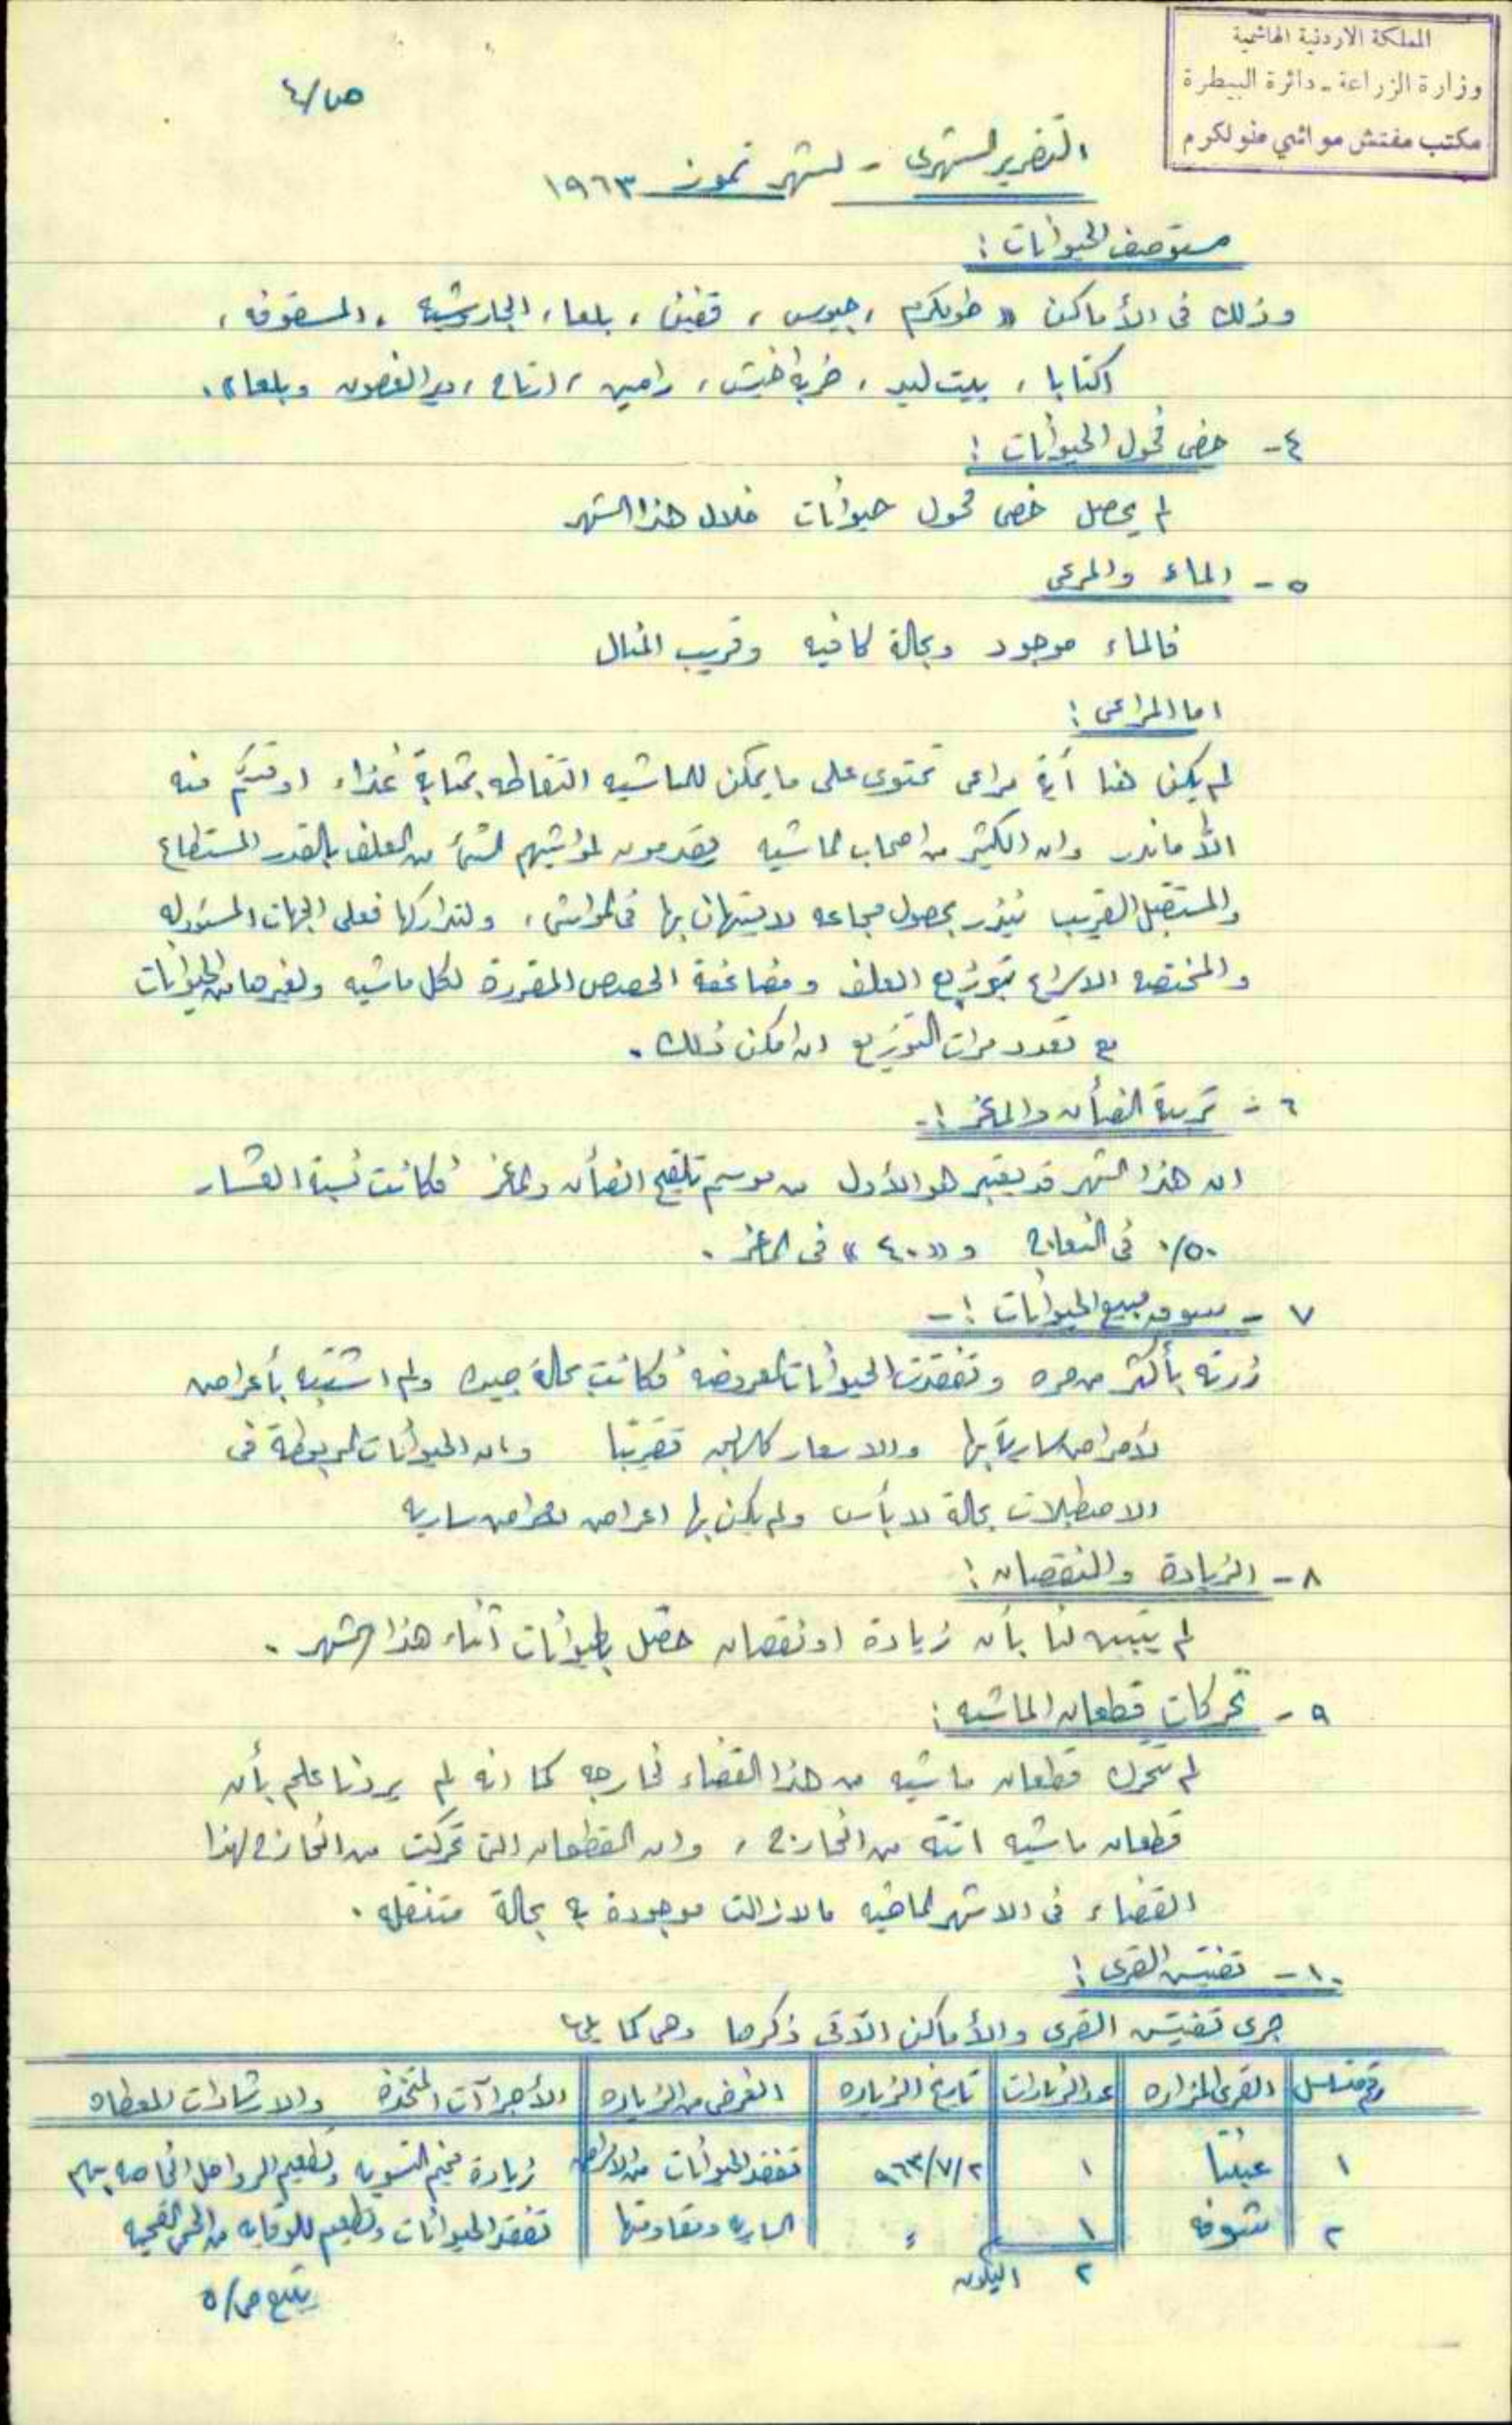 المملكة الاردنية الهاشمية
وزارة الزراعة - دائرة البيطرة
مكتب مفتش مواشي طولكرم
ص/٤
التقرير الشهري - لشهر تموز ١٩٦٣
مستوصف الحيوانات :
وذلك في الأماكن « طولكرم ، جيوس ، قفين ، بلعا ، الجاروشيه ، المسقوفه ،
اكتابا ، بيت ليد ، خربة اخيش ، رامين ، ارتاح ، دير الغصون وبلعا » .
٤- خصي فحول الحيوانات :
لم يحصل خصي فحول حيوانات خلال هذا الشهر
٥- الماء والمرعى
فالماء موجود وبحالة كافيه وقريب المنال
اما المراعي :
لم يكن هنا أية مراعي تحتوى على ما يمكن للماشيه التقاطه بمثابة غذاء او منه
الاّ ماندر وان الكثير من اصحاب الماشيه يقدمون لمواشيهم شيئاً من العلف بالقدر المستطاع
والمستقبل القريب ينذر بحصول مجاعه لا يستهان بها في المواشي ، ولتداركها فعلى الجهات المسئوله
والمختصه الاسراع بتوزيع العلف ومضاعفة الحصص المقررة لكل ماشيه ولغيرها من الحيوانات
مع تعدد مرات التوزيع ان امكن ذلك .
٦- تربية الضأن والماعز :-
ان هذا الشهر قد يعتبر هو الأول من موسم تلقيح الضأن والماعز فكانت نسبة العشار
٥٠٪ في النعاج و « ٤٠ » في الماعز .
٧- سوق مبيع الحيوانات :-
زرته بأكثر من مره وتفقدت الحيوانات المعروضه فكانت بحالة جيده ولم اشتبه بأعراض
لأمراض سارية بها والاسعار كالسابق تقريبًا وان الحيوانات المربوطة في
الاصطبلات بحالة لا بأس ولم يكن بها اعراض لامراض ساريه
٨- الزيادة والنقصان :
لم يتبين لنا بأن زيادة او نقصان حصل بالحيوانات أثناء هذا الشهر .
٩- تحركات قطعان الماشيه :
لم تتحرك قطعان ماشيه من هذا القضاء لخارجه كما انه لم يردنا علم بأن
قطعان ماشيه اتته من الخارج ، وان القطعان التي تحركت من الخارج لهذا
القضاء في الاشهر الماضيه مالازالت موجودة به بحالة متنقله .
١٠- تفتيش القرى :
جرى تفتيش القرى والأماكن الآتي ذكرها وهي كما يلي :
رقم متسلسل | القرى المزاره | عدد الزيارات | تاريخ الزياره | الغرض من الزياره | الأجراآت المتخذة والارشادات المعطاه
١ | عنبتا | ١ | ٩٦٣/٧/٢ | تفقد الحيوانات من الامراض | زيارة مخيم التسويه وتطعيم الرواحل الخاصه بهم
٢ | شوفه | ١ | ء | الساريه ومقاومتها | تفقد الحيوانات وتطعيم للوقايه من الحمى الفحميه
٢
يتبع ص/٥